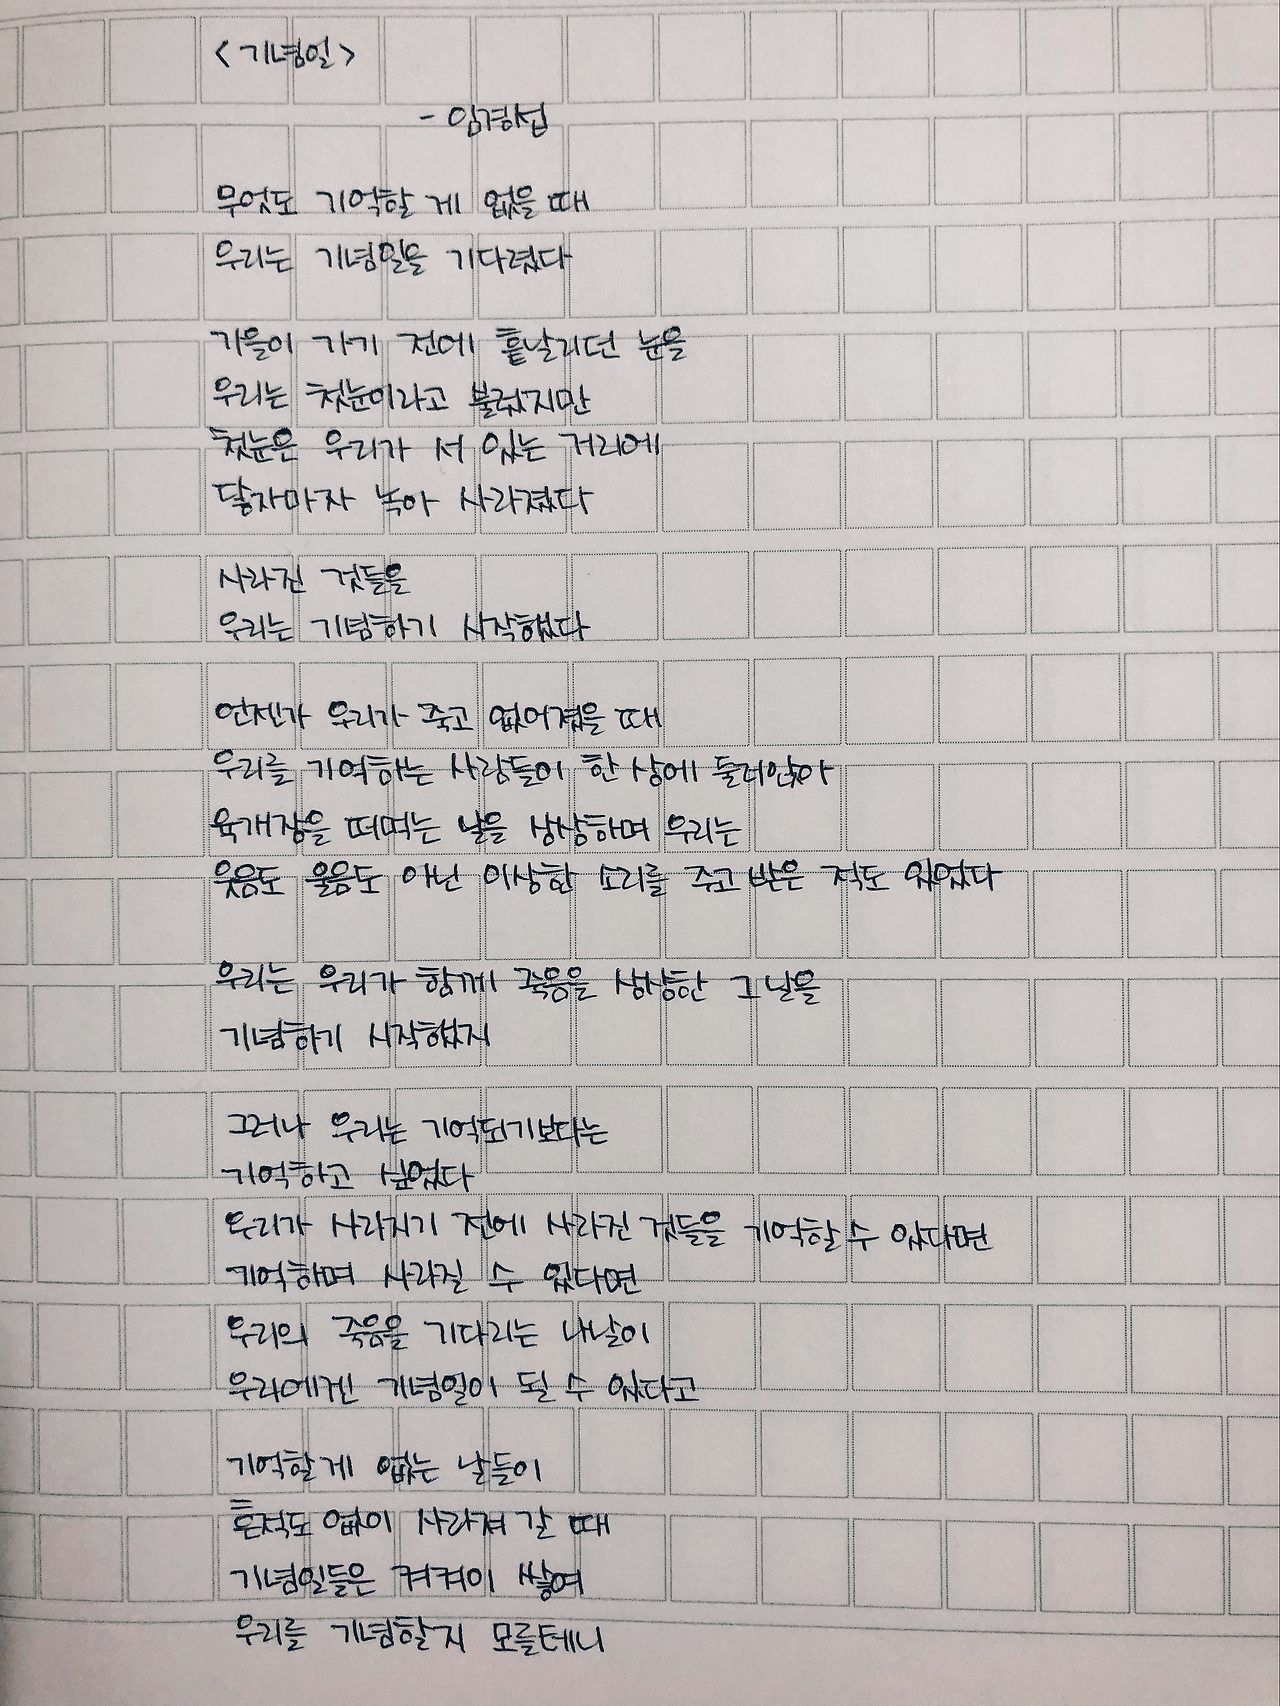 <기념일>
- 임경섭
무엇도 기억할 게 없을 때
우리는 기념일을 기다렸다
가을이 가기 전에 흩날리던 눈을
우리는 첫눈이라고 불렀지만
첫눈은 우리가 서 있는 거리에
닿자마자 녹아 사라졌다
사라진 것들을
우리는 기념하기 시작했다
언젠가 우리가 죽고 없어졌을 때
우리를 기억하는 사람들이 한 상에 둘러앉아
육개장을 떠먹는 날을 상상하며 우리는
웃음도 울음도 아닌 이상한 소리를 주고 받은 적도 있었다
우리는 우리가 함께 죽음을 상상한 그 날을
기념하기 시작했지
그러나 우리는 기억되기보다는
기억하고 싶었다
우리가 사라지기 전에 사라진 것들을 기억할 수 있다면
기억하며 사라질 수 있다면
우리의 죽음을 기다리는 나날이
우리에겐 기념일이 될 수 있다고
기억할 게 없는 날들이
흔적도 없이 사라져 갈 때
기념일들은 켜켜이 쌓여
우리를 기념할지 모를테니